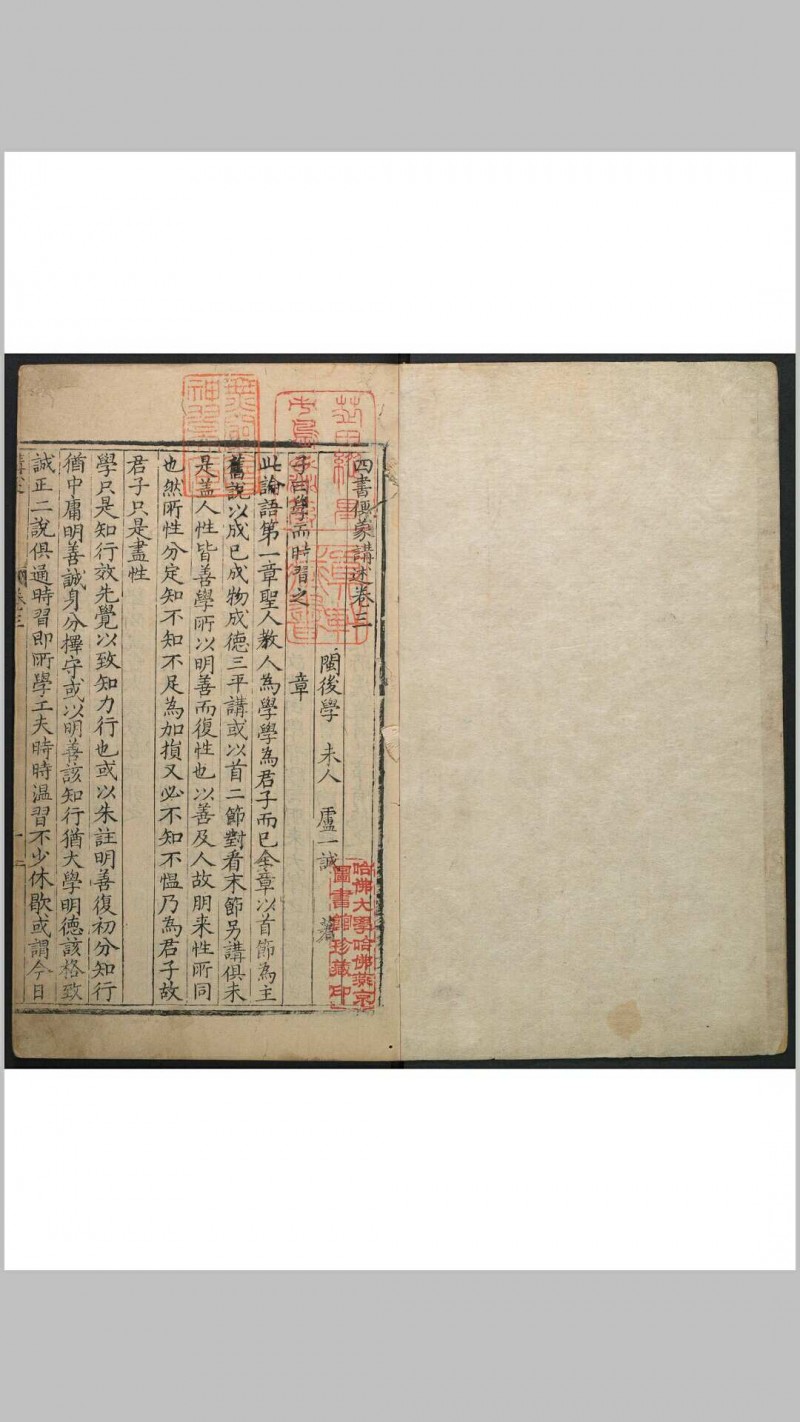 四書便蒙講述卷三
閩後學 未人 盧一誠 著
子曰學而時習之 章
此論語第一章聖人教人為學學為君子而已全章以首節為主
舊說以成已成物成德三平講或以首二節對看末節另講俱未
是盖人性皆善學所以明善而復性也以善及人故朋来性所同
也然所性分定知不知不足為加損又必不知不愠乃為君子故
君子只是盡性
學只是知行效先覺以致知力行也或以朱註明善復初分知行
猶中庸明善誠身分擇守或以明善該知行猶大學明德該格致
誠正二說俱通時習即所學工夫時時温習不少休歇或謂今日
卷三
哈佛大學哈佛燕京
圖書館珍藏印